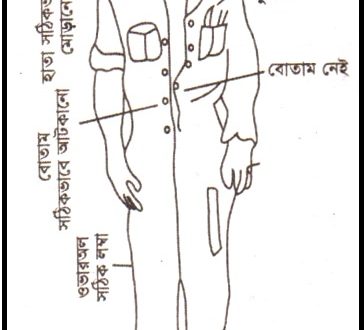 হাতা সঠিকভ
মোড়ানো
বোতাম
সঠিকভাবে আটকানো
বোতাম নেই
ওভারঅল
সঠিক লম্বা